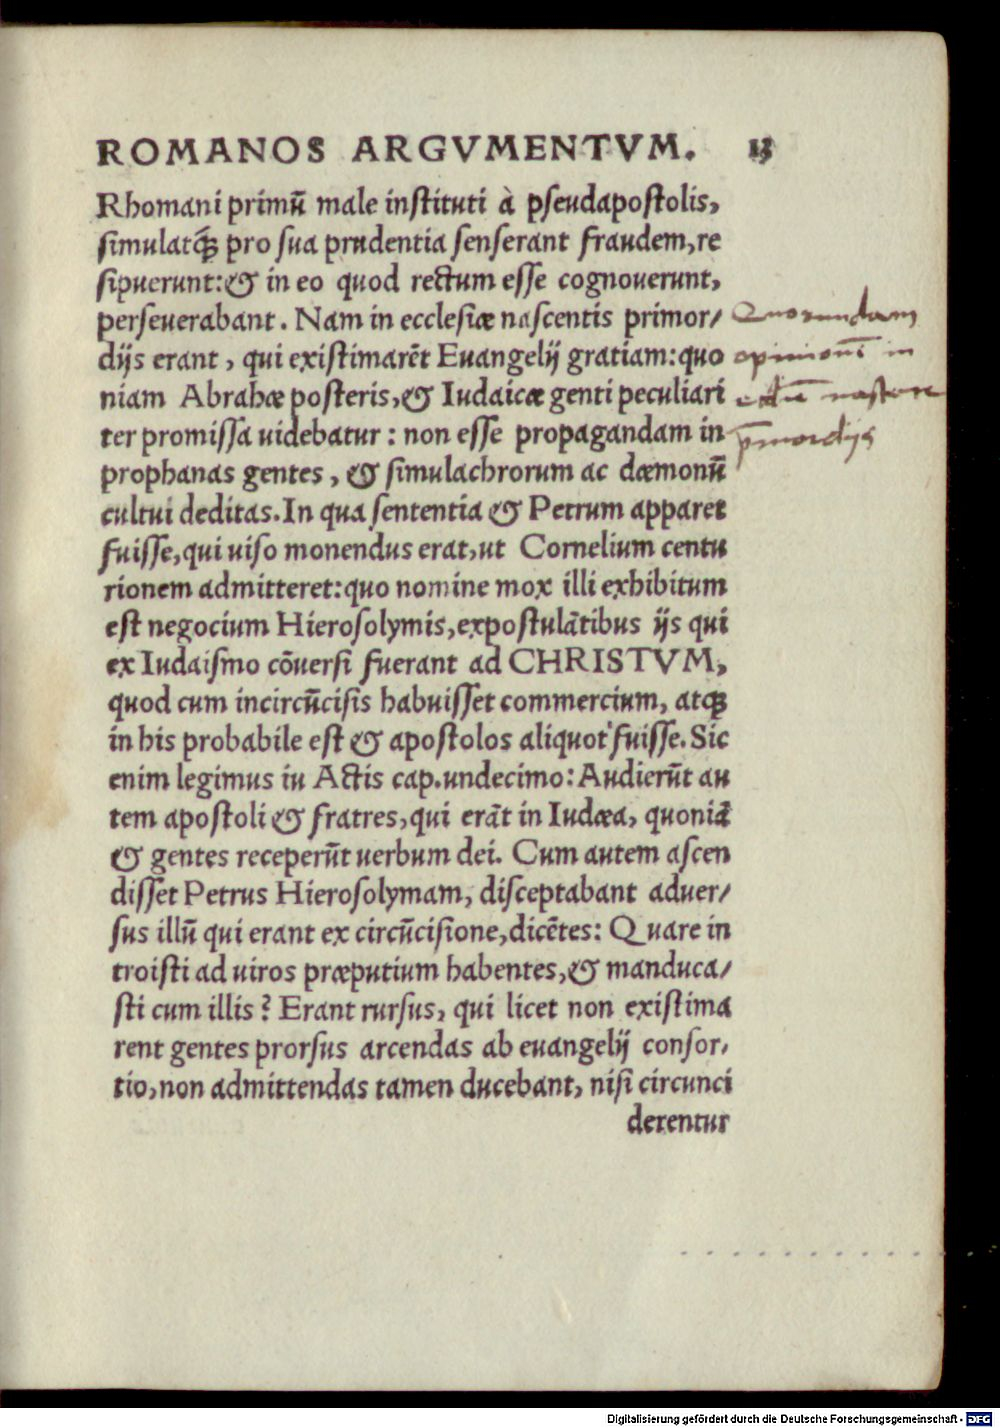 ROMANOS ARGVMENTVM. 13
Rhomani primũ male instituti à pseudapostolis,
simulatq́ꝫ pro sua prudentia senserant fraudem, re
sipuerunt: & in eo quod rectum esse cognouerunt,
perseuerabant. Nam in ecclesiæ nascentis primor/
dijs erant, qui existimarẽt Euangelij gratiam: quo
niam Abrahæ posteris, & Iudaicæ genti peculiari
ter promissa uidebatur: non esse propagandam in
prophanas gentes, & simulachrorum ac dæmonũ
cultui deditas. In qua sententia & Petrum apparet
fuisse, qui uiso monendus erat, ut Cornelium centu
rionem admitteret: quo nomine mox illi exhibitum
est negocium Hierosolymis, expostulãtibus ijs qui
ex Iudaismo cõuersi fuerant ad CHRISTVM,
quod cum incircũcisis habuisset commercium, atqꝫ
in his probabile est & apostolos aliquot fuisse. Sic
enim legimus in Actis cap. undecimo: Audierũt au
tem apostoli & fratres, qui erãt in Iudæa, quoniã
& gentes receperũt uerbum dei. Cum autem ascen
disset Petrus Hierosolymam, disceptabant aduer/
sus illũ qui erant ex circũcisione, dicẽtes: Quare in
troisti ad uiros præputium habentes, & manduca/
sti cum illis? Erant rursus, qui licet non existima
rent gentes prorsus arcendas ab euangelij consor/
tio, non admittendas tamen ducebant, nisi circunci
derentur
Quorundam
in
p̃mordijs
Digitalisierung gefördert durch die Deutsche Forschungsgemeinschaft - DFG